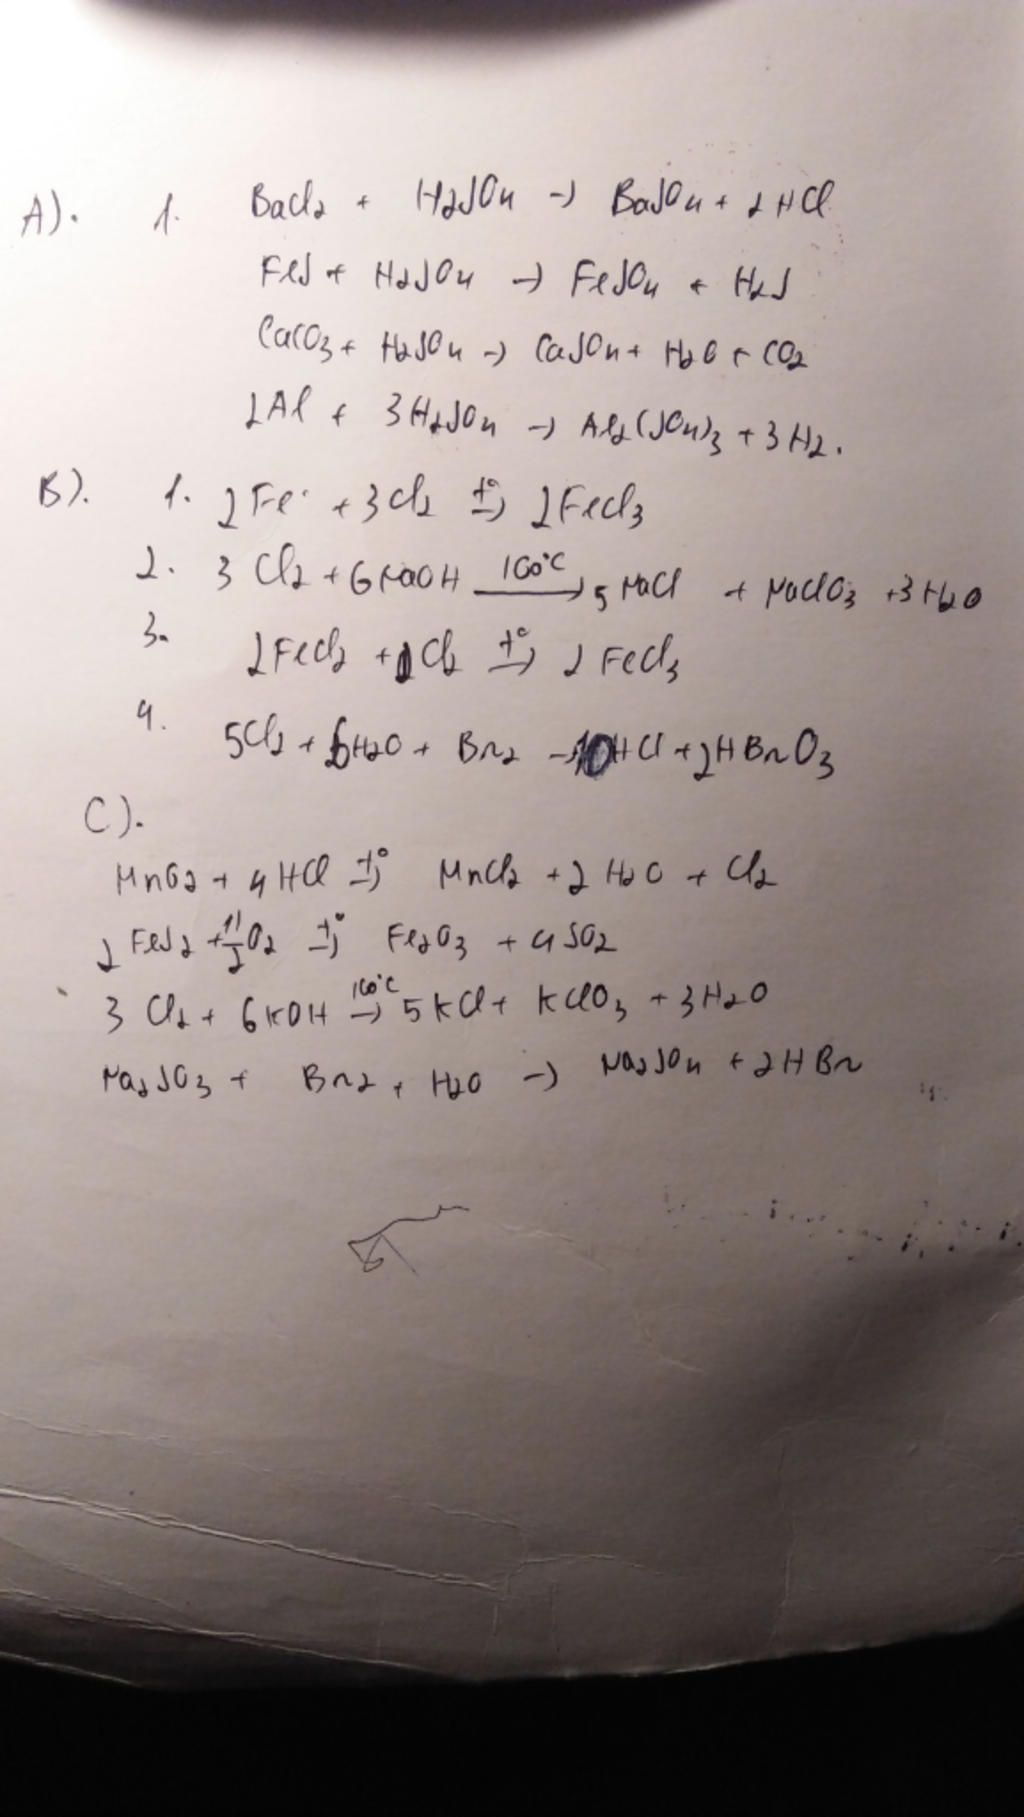 A). 1. BaCl2 + H2SO4 -> BaSO4 + 2HCl
FeS + H2SO4 -> FeSO4 + H2S
CaCO3 + H2SO4 -> CaSO4 + H2O + CO2
2Al + 3H2SO4 -> Al2(SO4)3 + 3H2.
B). 1. 2Fe + 3Cl2 t°-> 2FeCl3
2. 3Cl2 + 6NaOH 100°C-> 5NaCl + NaClO3 + 3H2O
3. 2FeCl2 + 1Cl2 t°-> 2FeCl3
4. 5Cl2 + 6H2O + Br2 -> 10HCl + 2HBrO3
C).
MnO2 + 4HCl t°-> MnCl2 + 2H2O + Cl2
2FeS2 + 11/2O2 t°-> Fe2O3 + 4SO2
3Cl2 + 6KOH 100°C-> 5KCl + KClO3 + 3H2O
Na2SO3 + Br2 + H2O -> Na2SO4 + 2HBr